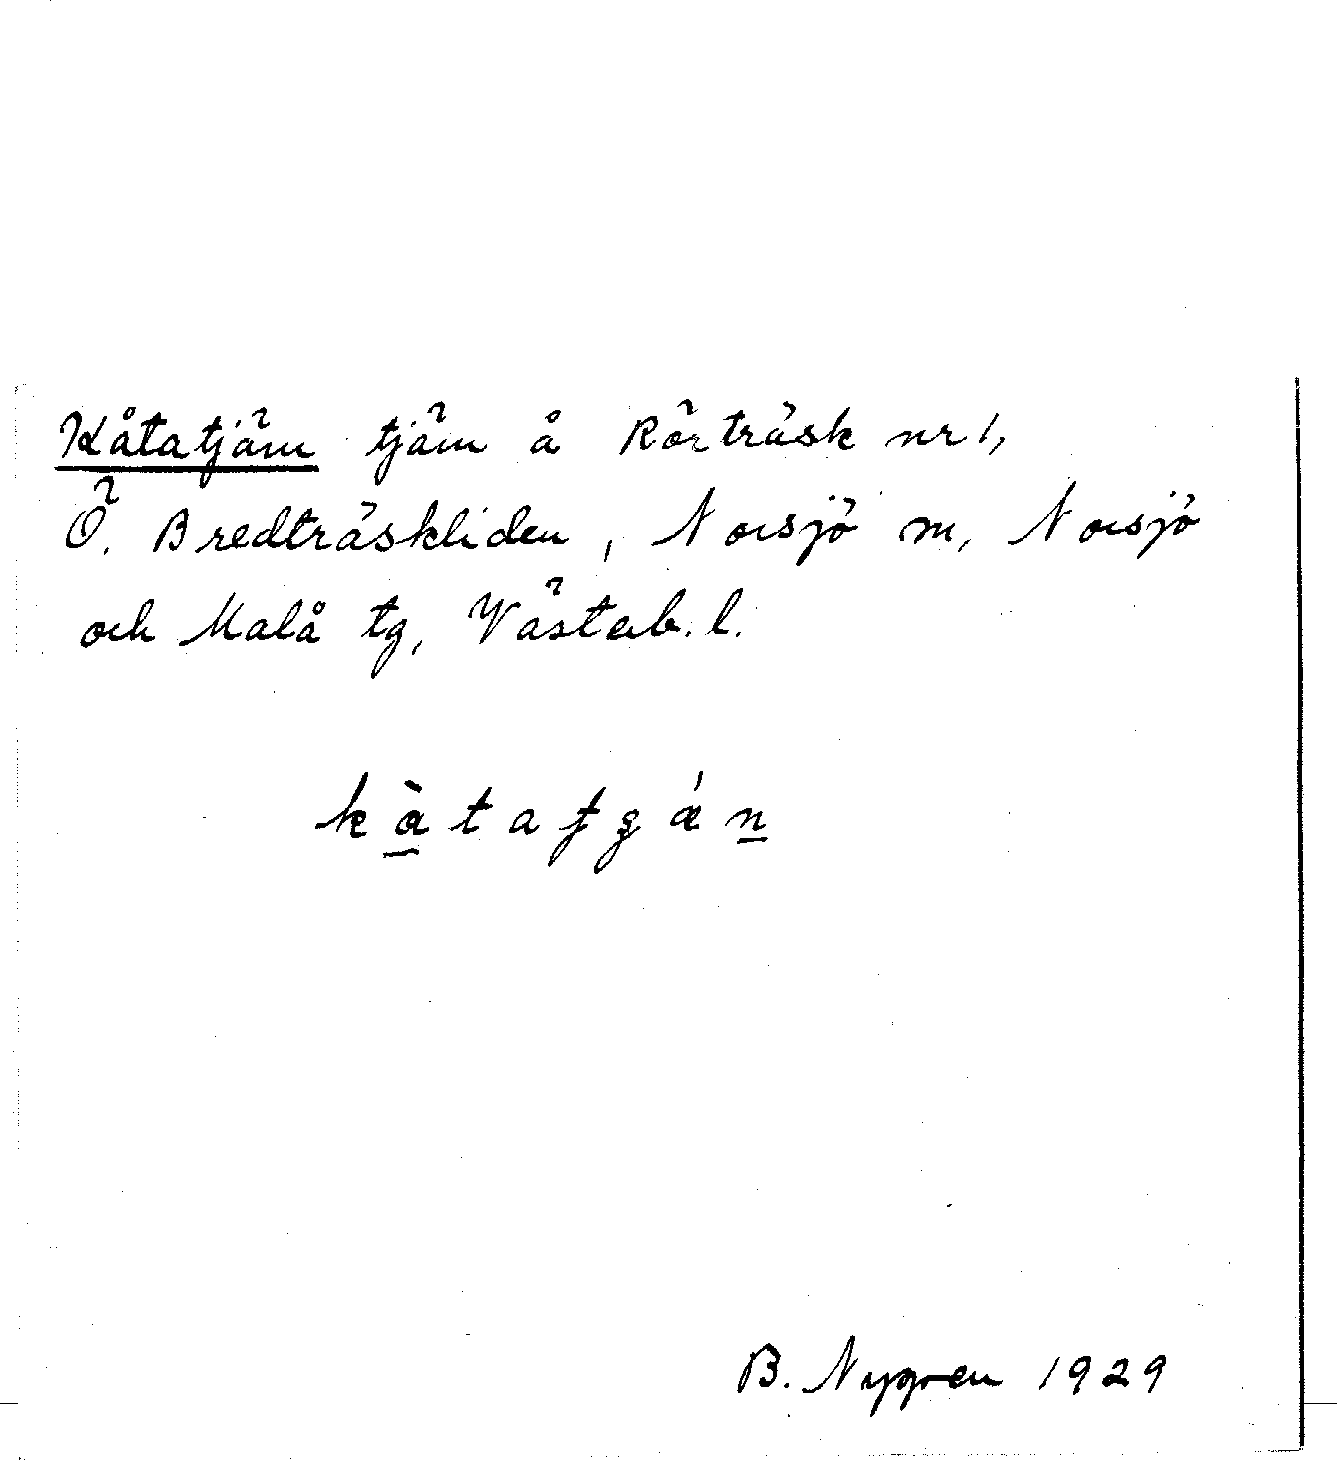 Kåtatjäm tjäm å Rörträsk nr 1,
Ö. Bredträskliden, Norsjö m, Norsjö
och Malå tg, Västerb. l.
B. Nygren 1929